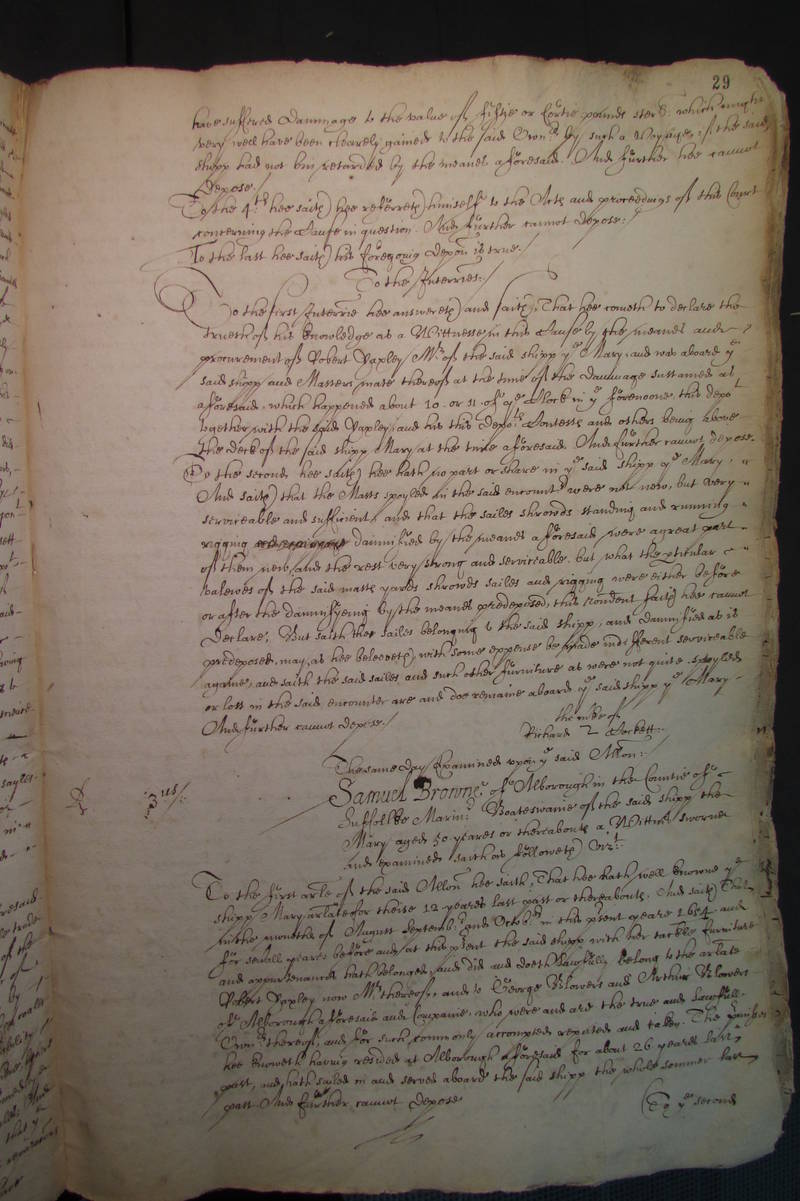 29
have suffered dammage to the value of fiftie or fortie pounds sterl: which might
very well have been clearely gained to the said Own:rs by such a Voyage if the said
shipp had not bin retarded by the meanes aforesaid. And further hee cannot
depose./
To the 4:th hee saith hee referreth himself to the Acts and proceedings of this Court
concerning the Cause in question. And further cannot depose:/
To the last hee saith his foregoing depo:on is true./
To the Interries:/
To the first Interrie hee answereth and saith, That hee cometh to declare the
trueth of his knowledge as a Wittnesse in this Cause by the meanes and
procurement of Robert Yaxley M:r of the said shipp y:e Mary, and was aboard y:e
said shipp and Masters mate thereof at the time of the dammage sustained as
aforesaid, which happened about 10. or 11 of y:e Clock in y:e forenoone, this depo:t
together with the said Yaxley, and his this depo:ts Contests and others being above
the deck of the said shipp Mary at the time aforesaid. And further cannot depose.
To the second hee saith hee hath no part or share in y:e said shipp y:e Mary,
And saith that the Masts spoyled in the said encounter were not new, but very
serviceable and sufficient, and that the sailes shrowds standing and running
rigging damnified by the meanes aforesaid were a great part
of them new, and the rest very strong and serviceable. but what the p:rticular
valewes of the said masts yards shrowds sailes and rigging were either before
or after the damnifyeing by the meanes predeposed, this rendent saith hee cannot
declare, But saith that sailes belonging to the said shipp, and damnified as is
predeposed, may, as hee beleeveth, with some expense be made indifferent serviceable
againe, and saith the said sailes and such other furniture as were not quite spoyled
or lost in the said encounter are and doe remaine aboard y:e said shipp y:e Mary
And further cannot depose./
the m:rke of
Richard 2 Lockett:
The same day Examined upon y:e said All:on:/
3:us/:
Samuel Browne of Alborough in the Countie of
Suffolke Marin:r Boateswaine of the said shipp the
Mary aged 50 yeares or thereabouts a Wittnes sworne
and examined saith as followeth Viz:t:
To the first ar:le of the said All:on hee saith, That hee hath well knowne y:e
shipp Mary ar:late for theise 12 yeares last past or thereabouts, And saith That
in the moneths of August Septemb:r and Octob:r in this p:sent yeare 1654, and
for sev:all yeares before and at this p:sent the said shipp with her tackle furniture
and appurtenances hath belonged, and did and doeth Lawfully belong to the ar:late
Robert Yaxley now M:r thereof, and to George Blowers and Arthur Blowers
of Alborough aforesaid and Companie, who were and are the true and Lawfull
Own:rs thereof, and for such com̄only accompted reputed and taken. The
hee knoweth having resided at Alborough aforesaid for about 26 yeares last
past, and hath sailed in and served aboard the said shipp the whole sommer last
past And further cannot depose
To y:e second